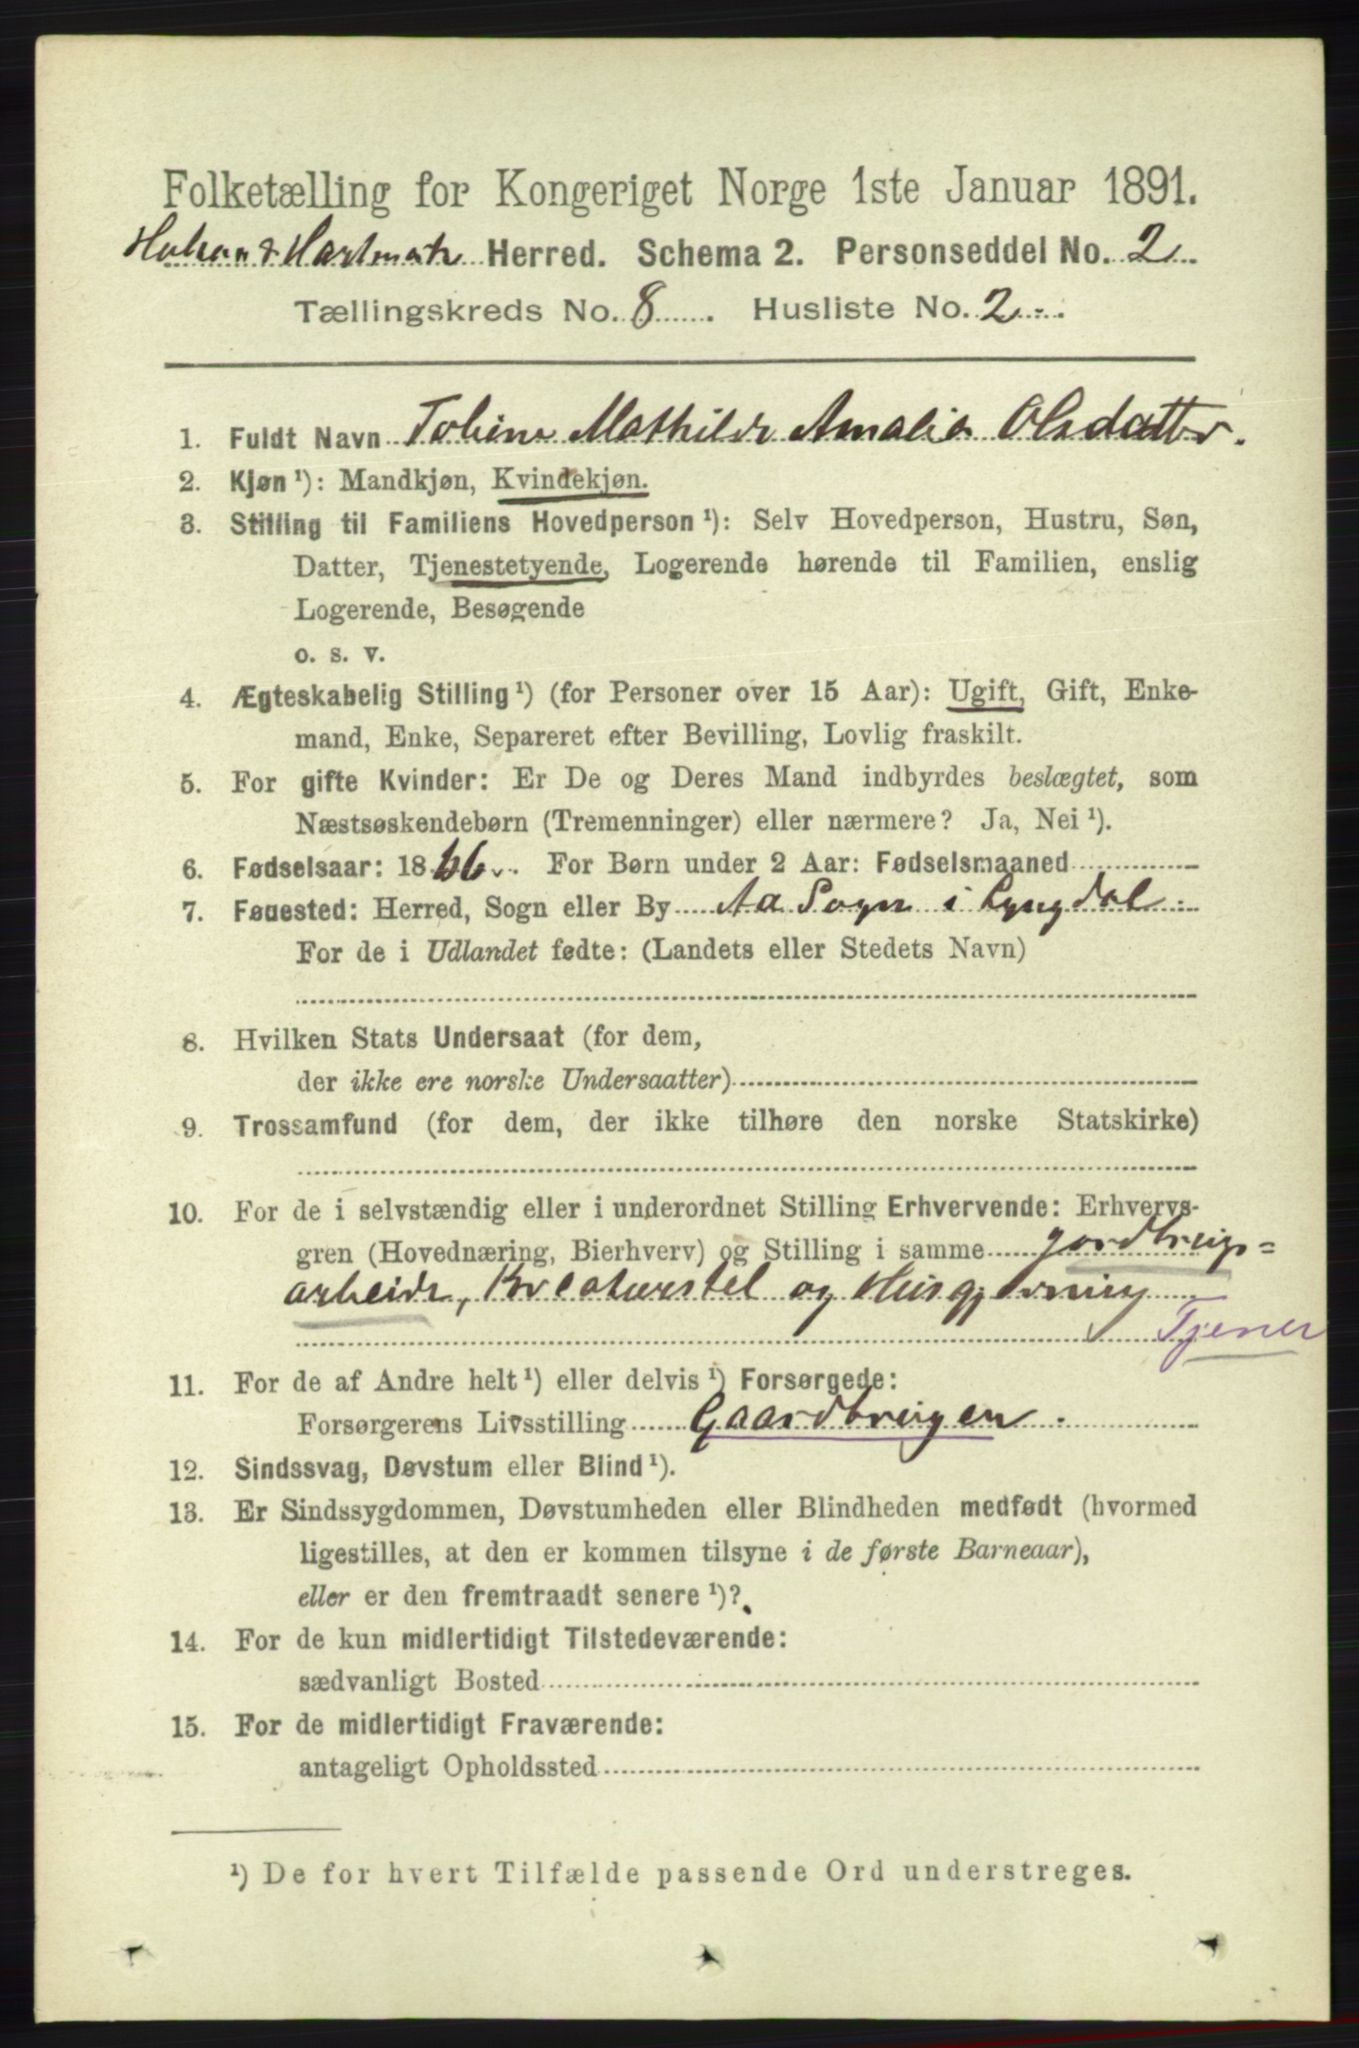 Folketælling for Kongeriget Norge 1ste Januar 1891.
Halsaa & Hartmark Herred. Schema 2. Personseddel No. 2
Tællingskreds No. 8. Husliste No. 2
1. Fuldt Navn Tobine Mathilde Amalia Olsdatter.
2. Kjøn ¹): Mandkjøn, Kvindekjøn.
3. Stilling til Familiens Hovedperson ¹): Selv Hovedperson, Hustru, Søn,
Datter, Tjenestetyende, Logerende hørende til Familien, enslig
Logerende, Besøgende
o. s. v.
4. Ægteskabelig Stilling ¹) (for Personer over 15 Aar): Ugift, Gift, Enke-
mand, Enke, Separeret efter Bevilling, Lovlig fraskilt.
5. For gifte Kvinder: Er De og Deres Mand indbyrdes beslægtet, som
Næstsøskendebørn (Tremenninger) eller nærmere? Ja, Nei ¹).
6. Fødselsaar: 1866. For Børn under 2 Aar: Fødselsmaaned
7. Føuested: Herred, Sogn eller By Aa Sogn i Lyngdal.
For de i Udlandet fødte: (Landets eller Stedets Navn)
8. Hvilken Stats Undersaat (for dem,
der ikke ere norske Undersaatter)
9. Trossamfund (for dem, der ikke tilhøre den norske Statskirke)
10. For de i selvstændig eller i underordnet Stilling Erhvervende: Erhvervs-
gren (Hovednæring, Bierhverv) og Stilling i samme jordbrugs=
arbeide, Kreaturstel og Husgjerning
Tjener
11. For de af Andre helt ¹) eller delvis ¹) Forsørgede:
Forsørgerens Livsstilling Gaardbrugen.
12. Sindssvag, Døvstum eller Blind ¹).
13. Er Sindssygdommen, Døvstumheden eller Blindheden medfødt (hvormed
ligestilles, at den er kommen tilsyne i de første Barneaar),
eller er den fremtraadt senere ¹)?
14. For de kun midlertidigt Tilstedeværende:
sædvanligt Bosted
15. For de midlertidigt Fraværende:
antageligt Opholdssted
¹) De for hvert Tilfælde passende Ord understreges.